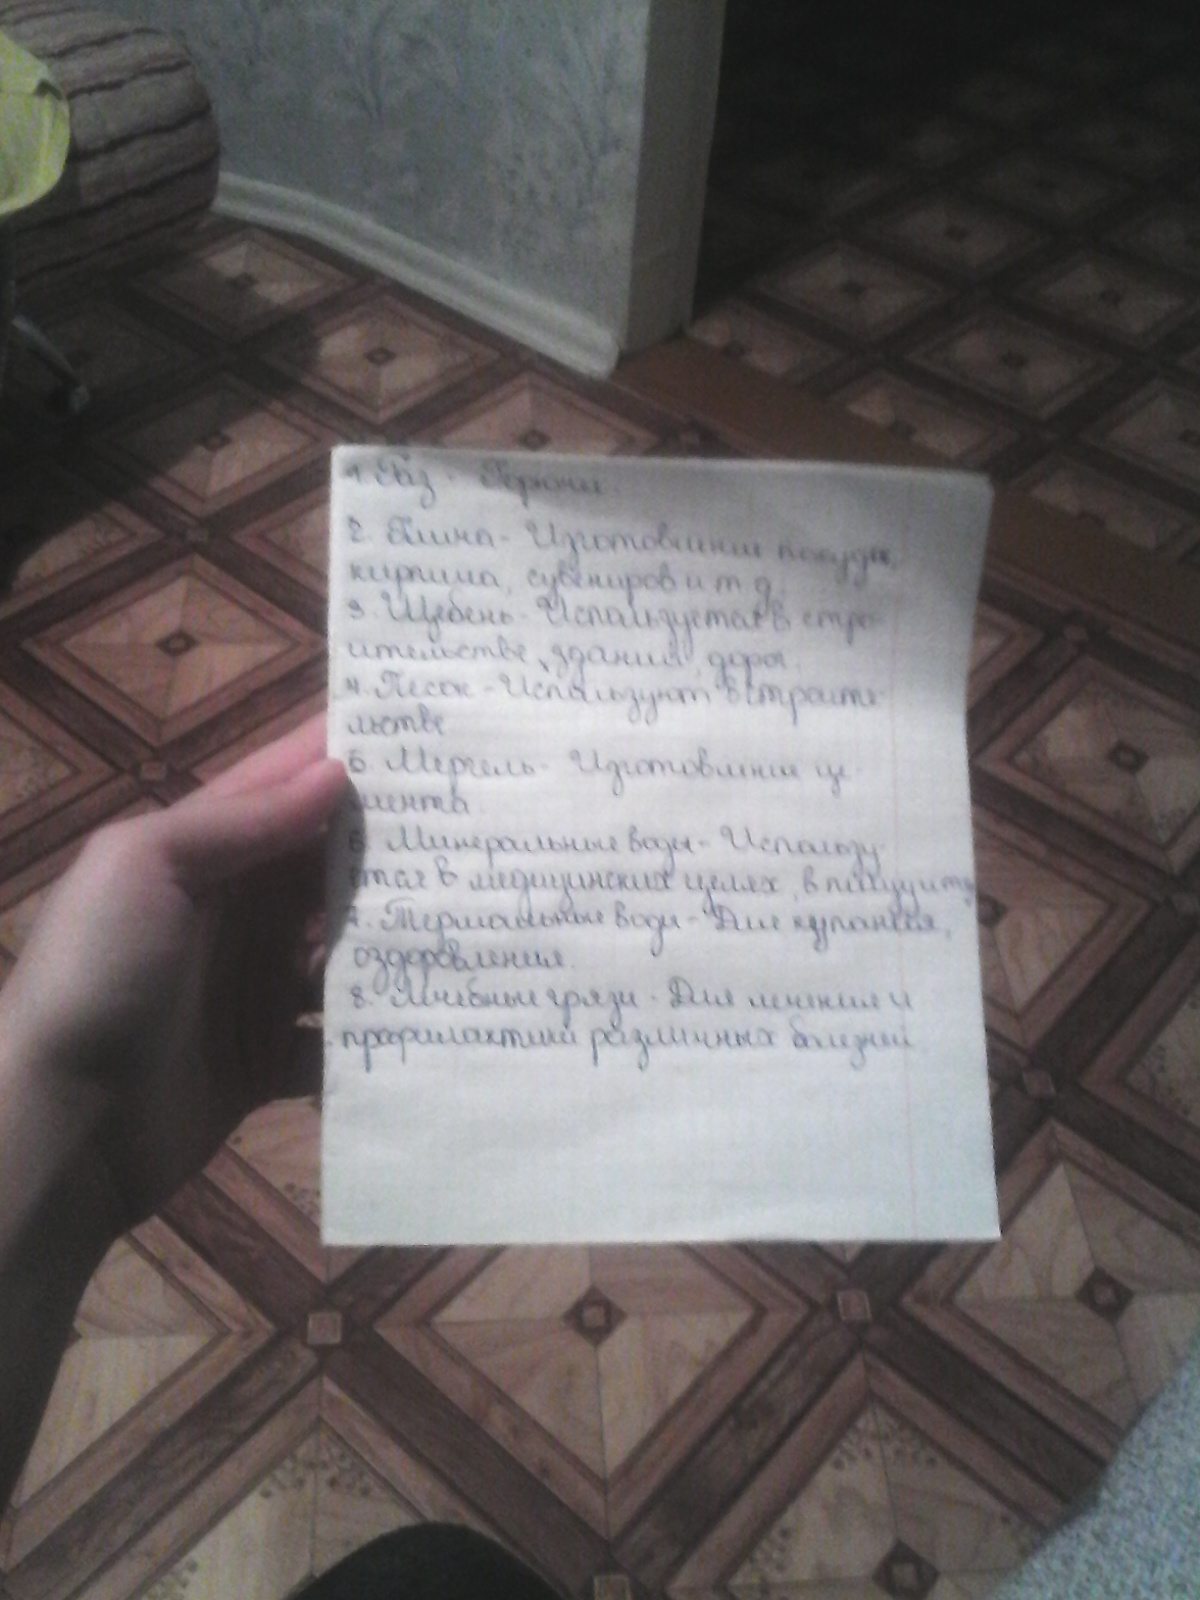 1. Газ -
2. Глина - Изготовление посуды,
кирпича, сувениров и т д.
3. Щебень - Используется в стро-
ительстве, зданий, дорог.
4. Песок - Используют в строите-
льстве
5. Мергель - Изготовление це-
мента.
6. Минеральные воды - Использу-
ются в медицинских целях, в пищу и тд
7. Термальные воды - Для купания,
оздоровления.
8. Лечебные грязи - Для лечения и
профилактики различных болезней.